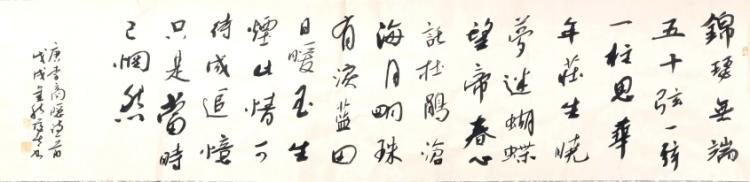 錦瑟無端
五十弦一弦
一柱思華
年莊生曉
夢迷蝴蝶
望帝春心
託杜鵑滄
海月明珠
有淚藍田
日暖玉生
煙此情可
待成追憶
只是當時
已惘然
唐李商隱詩一首
戊戌